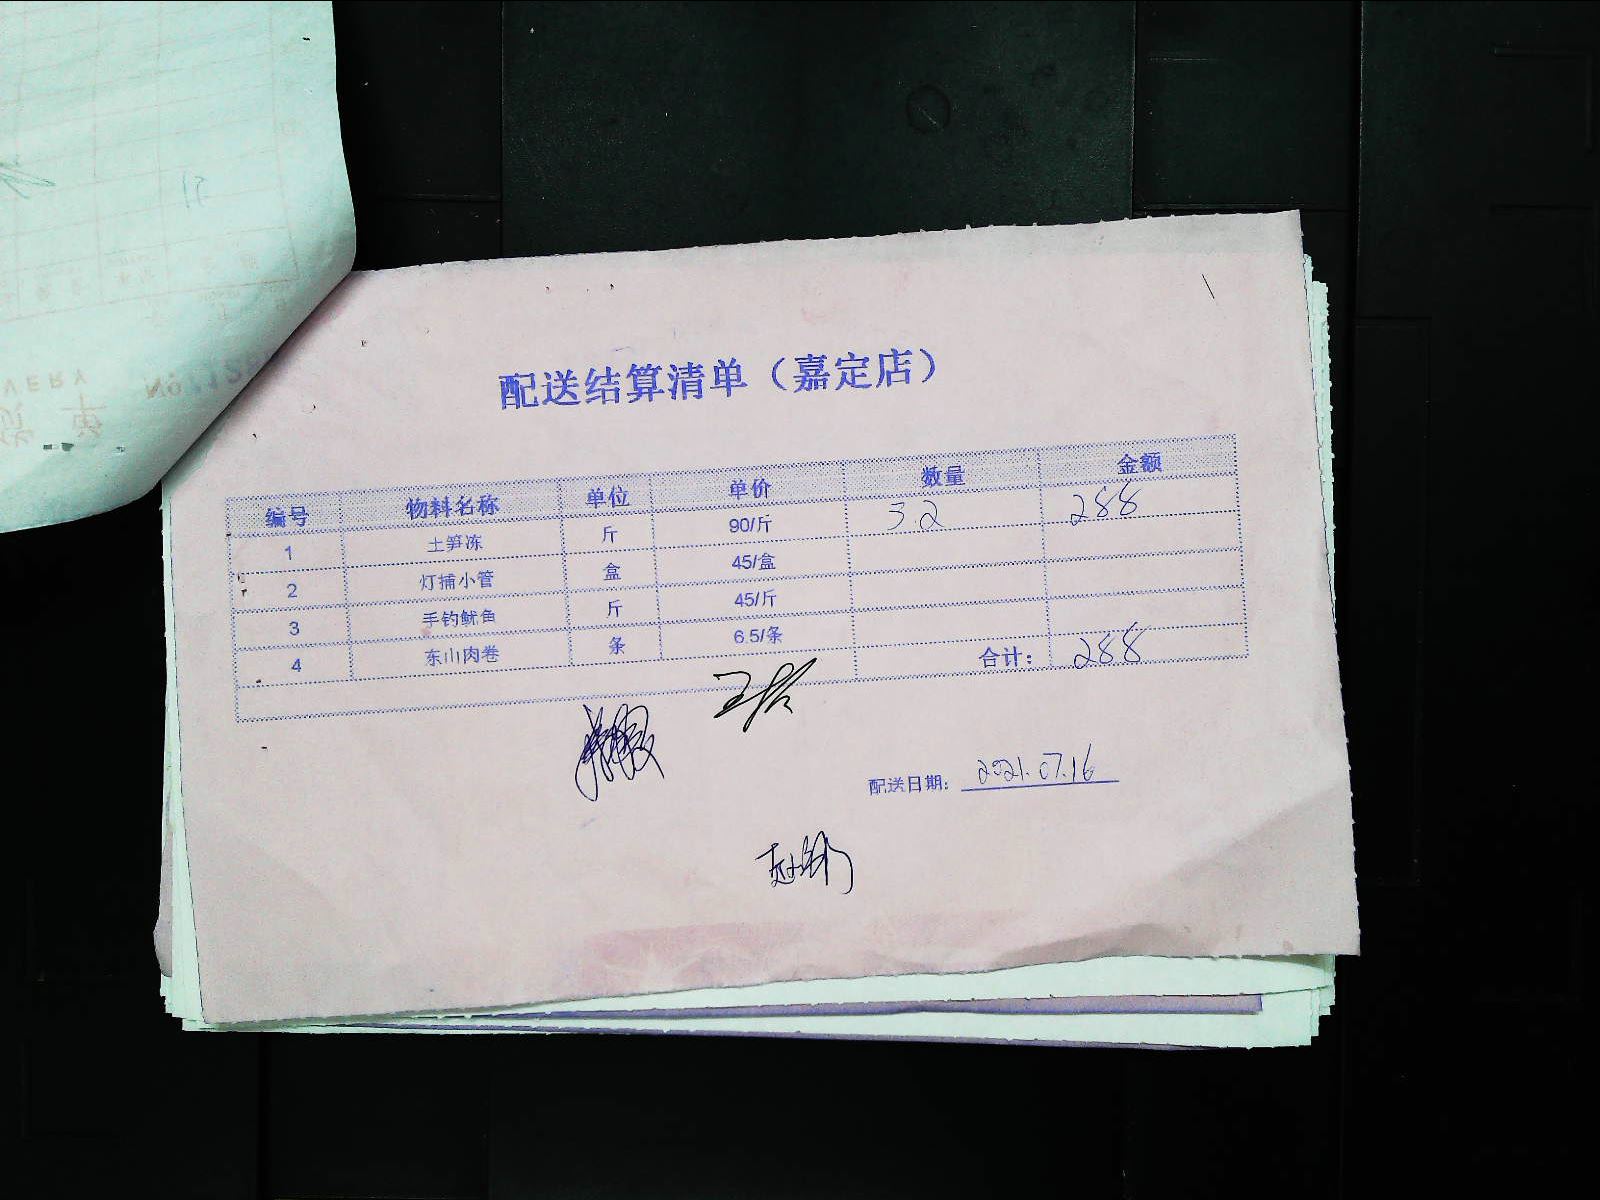 配送结算清单（嘉定店）
编号 物料名称 单位 单价 数量 金额
1 土笋冻 斤 90/斤 3.2 288
2 灯捕小管 盒 45/盒
3 手钓鱿鱼 斤 45/斤
4 东山肉卷 条 6.5/条
合计： 288
配送日期： 2021.07.16